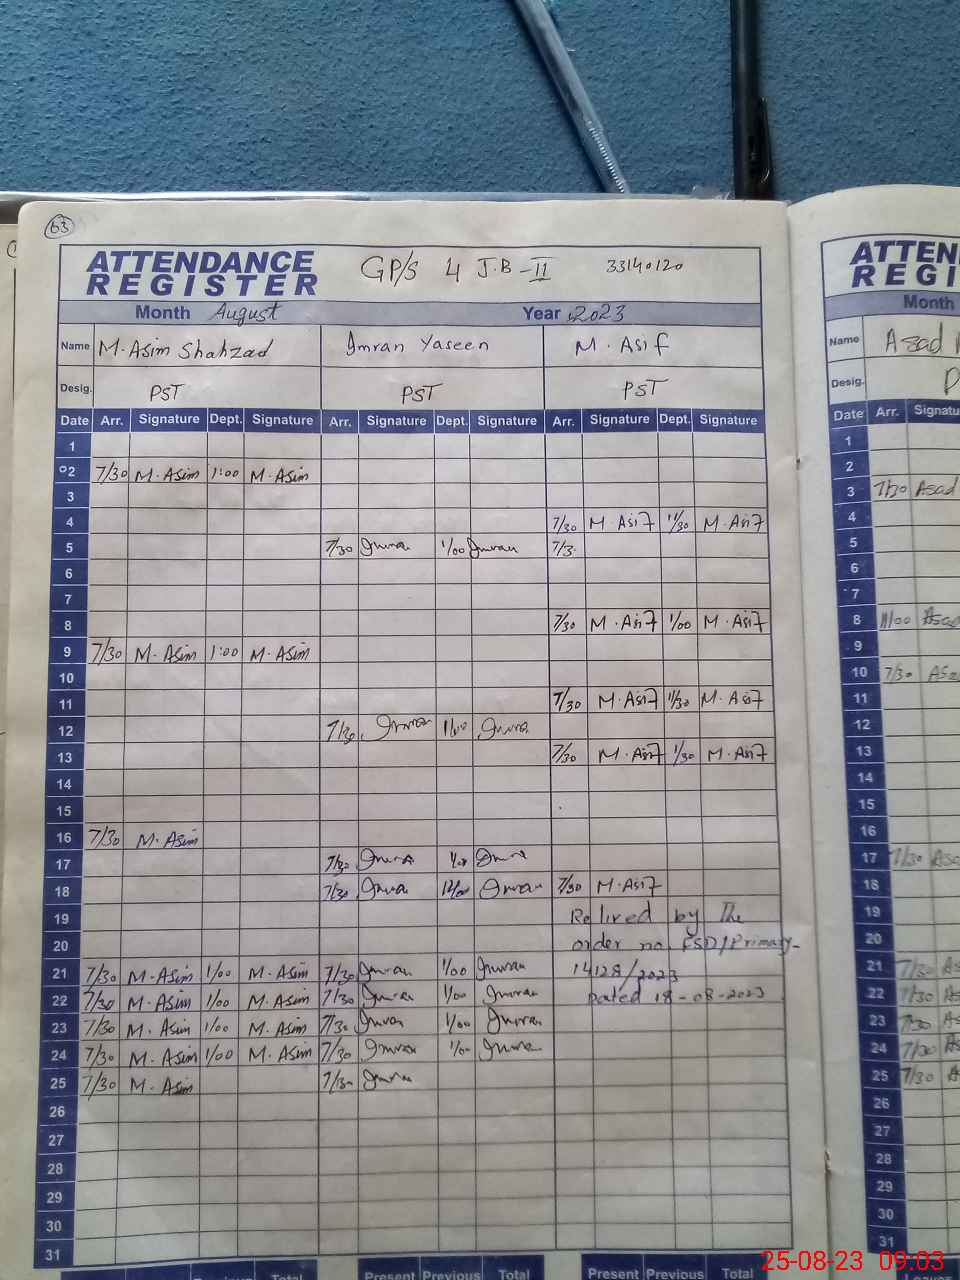 63
ATTENDANCE REGISTER GP/S 4 J.B-II 33140120
Month August Year 2023
Name M.Asim Shahzad Imran Yaseen M. Asif
Desig. PST PST PST
Date Arr. Signature Dept. Signature Arr. Signature Dept. Signature Arr. Signature Dept. Signature
1
2 7/30 M.Asim 1:00 M.Asim
3
4 7/30 M.Asif 11/30 M.Asif
5 7/30 Imran 1/00 Imran 7/3
6
7
8 7/30 M.Asif 1/00 M.Asif
9 7/30 M.Asim 1:00 M.Asim
10
11 7/30 M.Asif 11/30 M.Asif
12 7/30 Imran Imran
13 7/30 M.Asif 1/30 M.Asif
14
15
16 7/30 M.Asim
17 7/30 Imran 1/00 Imran
18 7/30 Imran 12/00 Imran 7/30 M.Asif
19 Relived by The
20 order no FSD/Primary-
21 7/30 M.Asim 1/00 M.Asim 7/30 Imran 1/00 Imran 14128/2023
22 7/30 M.Asim 1/00 M.Asim 7/30 Imran 1/00 Imran Dated 18-08-2023
23 7/30 M.Asim 1/00 M.Asim 7/30 Imran 1/00 Imran
24 7/30 M.Asim 1/00 M.Asim 7/30 Imran 1/00 Imran
25 7/30 M.Asim 7/30 Imran
26
27
28
29
30
31
Total Present Previous Total Present Previous Total
ATTEN
REGI
Month
Name Asad
Desig.
Date Arr. Signatu
1
2
3 7/30 Asad
4
5
6
7
8 11/00 Asad
9
10 7/30 Asa
11
12
13
14
15
16
17 7/30 Asa
18
19
20
21 7/30 As
22 7/30 As
23 7/30 As
24 7/30 As
25 7/30 As
26
27
28
29
30
31
25-08-23 09:03